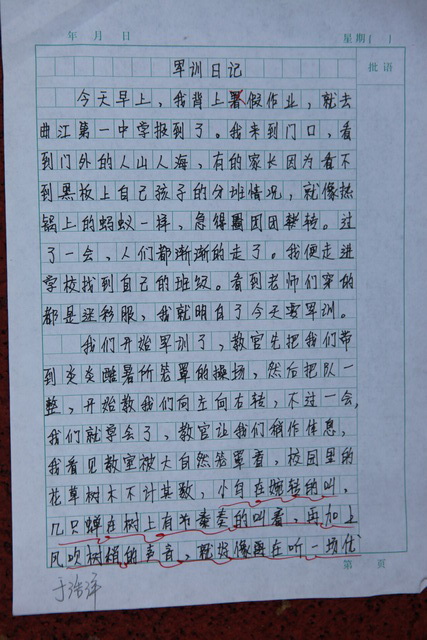 年 月 日 星期( )
批语
军训日记
今天早上，我背上暑假作业，就去
曲江第一中学报到了。我来到门口，看
到门外的人山人海，有的家长因为看不
到黑板上自己孩子的分班情况，就像热
锅上的蚂蚁一样，急得圈团团转。过
了一会，人们都渐渐的走了。我便走进
学校找到自己的班级。看到老师们穿的
都是迷彩服，我就明白了今天要军训。
我们开始军训了，教官先把我们带
到炎炎酷暑所笼罩的操场，然后把队一
整，开始教我们向左向右转，不过一会，
我们就学会了，教官让我们稍作休息，
我看见教室被大自然笼罩着，校园里的
花草树木不计其数，小鸟在婉转的叫，
几只蝉在树上有节奏的叫着，再加上
风吹树梢的声音，就好像在听一场优
第 页
于浩洋